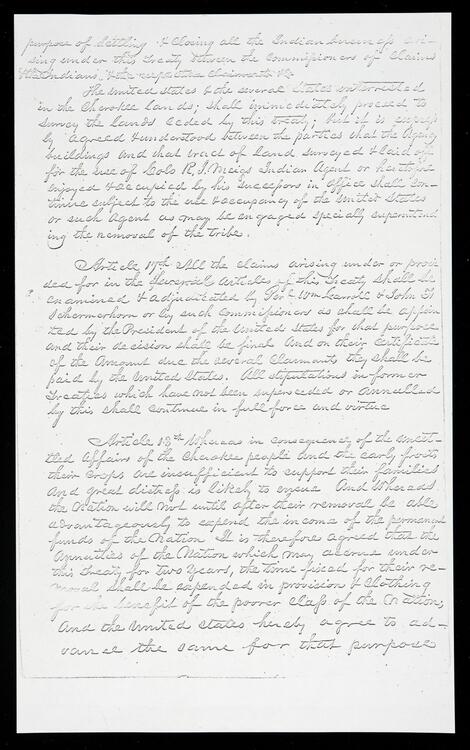 purpose of Settling & Closing all the Indian business ari-
sing under this treaty between the Commissioners of Claims
& the Indians, & the respective claimants &c
The United States & the several States interested
in the Cherokee lands; shall immediately proceed to
survey the lands ceded by this treaty; but it is express
ly agreed & understood between the parties that the Agency
buildings and that tract of land surveyed & laid off
for the use of Colo R. J. Meigs Indian Agent or heretofore
enjoyed & occupied by his Successors in office shall con-
tinue subject to the use & occupancy of the United States
or such Agent as may be engaged specially superintend
ing the removal of the tribe.
Article 17th All the claims arising under or provi
ded for in the several articles of this treaty shall be
examined & adjudicated by Wm Carroll & John F
Schermerhorn or by such Commissioners as shall be appoin
ted by the President of the United States for that purpose
and their decision shall be final and on their certificate
of the Amount due the several Claimants they shall be
paid by the United States. All stipulations in former
treaties which have not been superceded or annulled
by this shall continue in full force and virtue
Article 18th Whereas in consequence of the unset-
tled Affairs of the Cherokee people and the early frosts
their Crops are insufficient to support their families
and great distress is likely to ensue And Whereas
the Nation will not until after their removal be able
advantageously to expend the income of the permanent
funds of the Nation It is therefore agreed that the
Annuities of the Nation which may accrue under
this treaty for two Years, the time fixed for their re-
moval shall be expended in provision & Clothing
for the benefit of the poorer class of the Nation,
And the United States hereby agree to ad-
vance the same for that purpose